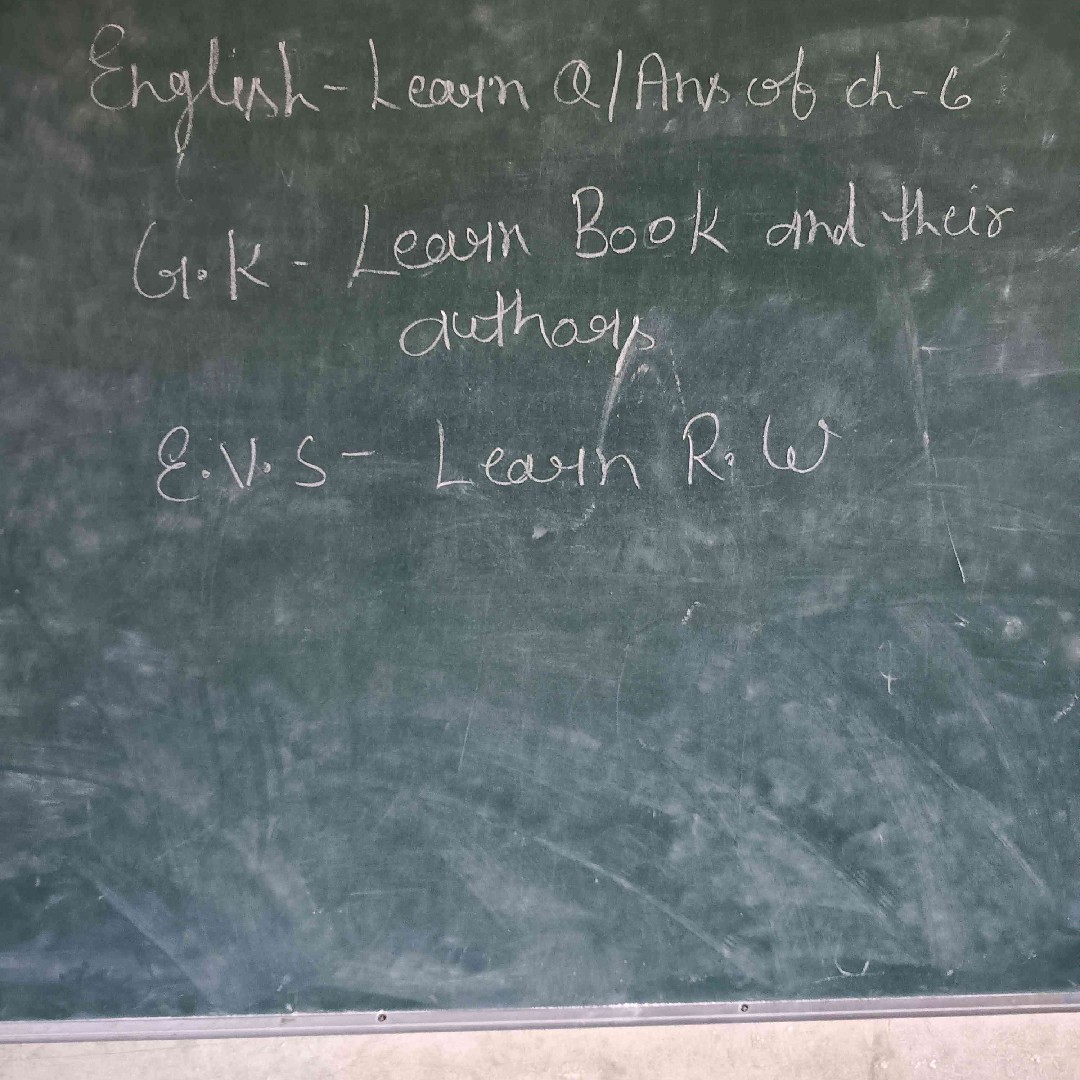 English - Learn Q/Ans of ch-6
G.K - Learn Book and their
authors
E.V.S - Learn R.W